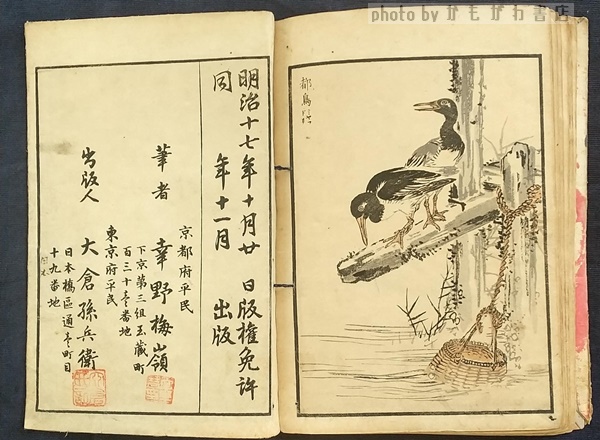 photo by かもがわ書店
都鳥
明治十七年十月廿 日版権免許
同 年十一月 出版
京都府平民
筆者 幸野楳嶺
下京第三組玉蔵町
百三十壱番地
東京府平民
出版人 大倉孫兵衛
日本橋區通壱町目
十九番地